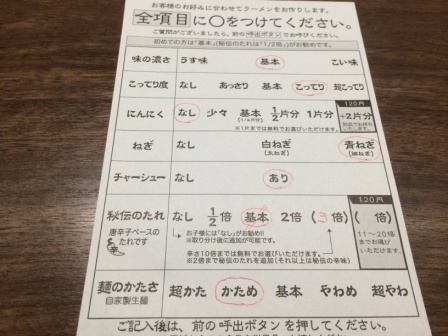 お客様のお好みに合わせてラーメンをお作りします。
全項目に○をつけてください。
ご質問がございましたら、前の呼出ボタンでお呼びください。
初めての方は「基本」(秘伝のたれは「1/2倍」)がお勧めです。
味の濃さ うす味 基本 こい味
こってり度 なし あっさり 基本 こってり 超こってり
にんにく なし 少々 基本 1/2片分 1片分
(1/4片分)
※1片までは無料でお選びいただけます。
120円
+2片分
ねぎ なし 白ねぎ 青ねぎ
チャーシュー なし あり
秘伝のたれ なし 1/2倍 基本 2倍 (3倍)
唐辛子ベースのたれです
お子様には「なし」がお勧め!!
※取り分け後に追加が可能です。
辛さ10倍までは無料でお選びいただけます。
※2倍まで秘伝のたれを追加(それ以上は秘伝の辛味)
120円
( 倍)
11〜20倍までお選びいただけます
麺のかたさ 超かた かため 基本 やわめ 超やわ
自家製生麺
ご記入後は、前の呼出ボタンを押してください。